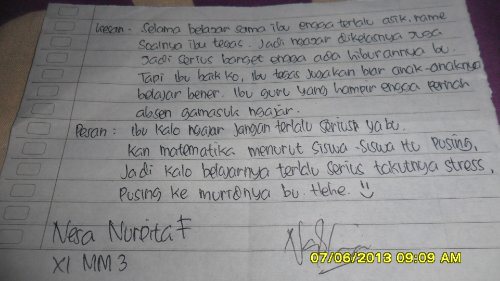 Kesan : Selama belajar sama ibu engga terlalu asik, rame
Soalnya ibu tegas. Jadi ngajar dikelasnya juga
Jadi serius banget engga ada hiburannya bu.
Tapi ibu baik ko, ibu tegas jugakan biar anak-anaknya
belajar bener. Ibu guru yang hampir engga pernah
absen gamasuk ngajar.
Pesan : Ibu kalo ngajar jangan terlalu serius ya bu.
Kan matematika menurut siswa-siswa itu pusing,
Jadi kalo belajarnya terlalu serius takutnya stress,
Pusing ke muridnya bu. Hehe.
Nesa Nurpita F
XI MM 3
07/06/2013 09:09 AM